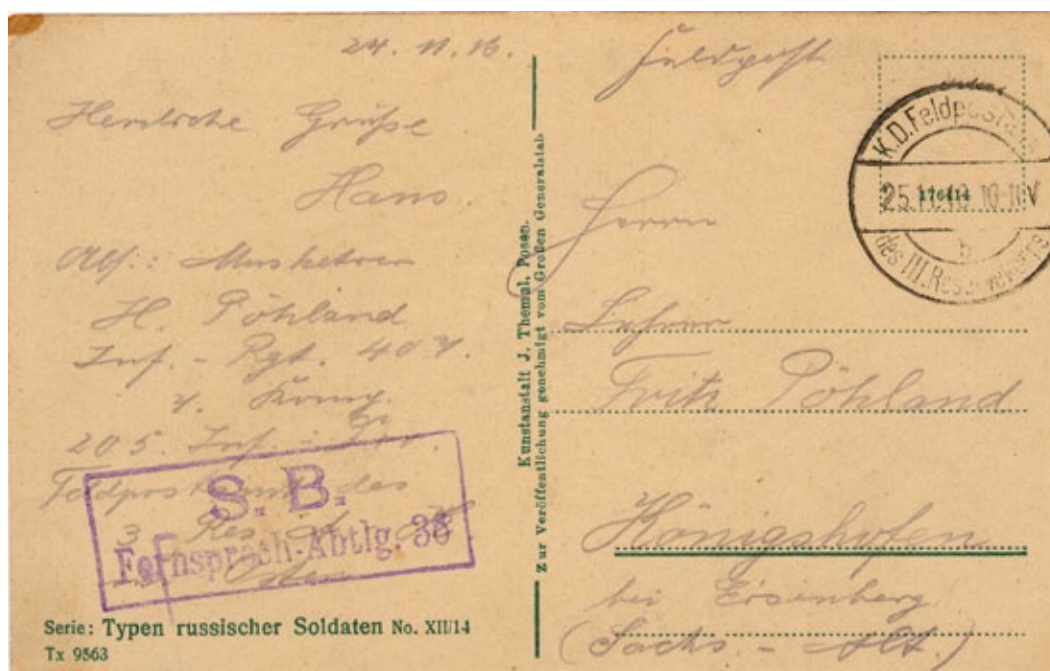 24. 11. 16.
Herzliche Grüße
Hans.
Abs.: Musketier
H. Pöhland
Inf. - Rgt. 407.
4. Komp.
205. Inf. - Div.
Feldpostamt des
3. Res.
Osten
S. B.
Fernsprech-Abtlg. 36
Serie: Typen russischer Soldaten No. XII/14
Tx 9563
Kunstanstalt J. Themal, Posen.
Zur Veröffentlichung genehmigt vom Großen Generalstab
Feldpost
K.D.Feldpost
25.11. 10-11V
176414
b
des III.Reservekorps
Herrn
Lehrer
Fritz Pöhland
Königshofen
bei Eisenberg
(Sachs. - Alt.)